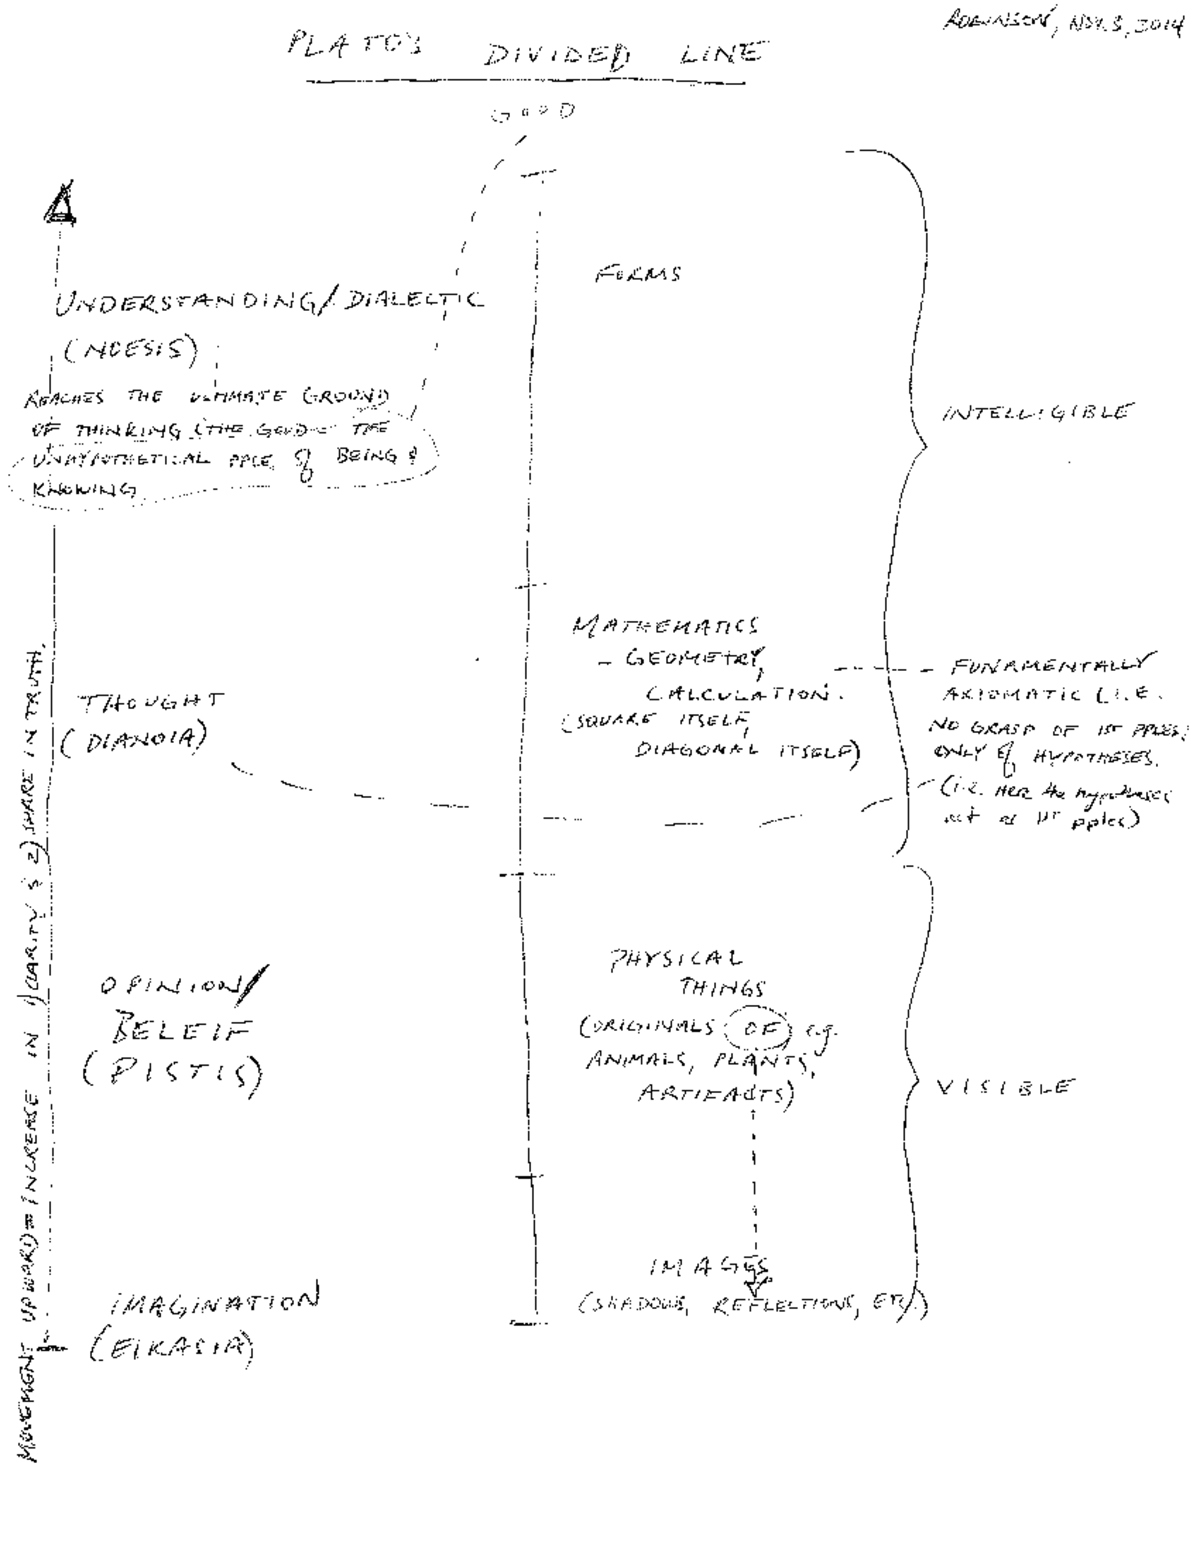 ROBINSON, NOV. 3, 2014
PLATO'S DIVIDED LINE
GOOD
FORMS
UNDERSTANDING/DIALECTIC
(NOESIS)
REACHES THE ULTIMATE GROUND
OF THINKING (THE GOOD - THE
UNHYPOTHETICAL PPLE OF BEING &
KNOWING
INTELLIGIBLE
MATHEMATICS
- GEOMETRY,
CALCULATION.
(SQUARE ITSELF,
DIAGONAL ITSELF)
FUNAMENTALLY
AXIOMATIC (I.E.
NO GRASP OF 1ST PPLES;
ONLY OF HYPOTHESES.
(i.e. HERE the hypotheses
act as 1st pples)
THOUGHT
(DIANOIA)
OPINION/
BELEIF
(PISTIS)
PHYSICAL
THINGS
(ORIGINALS OF) e.g.
ANIMALS, PLANTS,
ARTIFACTS)
VISIBLE
IMAGES
(SHADOWS, REFLECTIONS, ETC.)
IMAGINATION
(EIKASIA)
MOVEMENT UPWARD = INCREASE IN 1) CLARITY & 2) SHARE IN TRUTH.